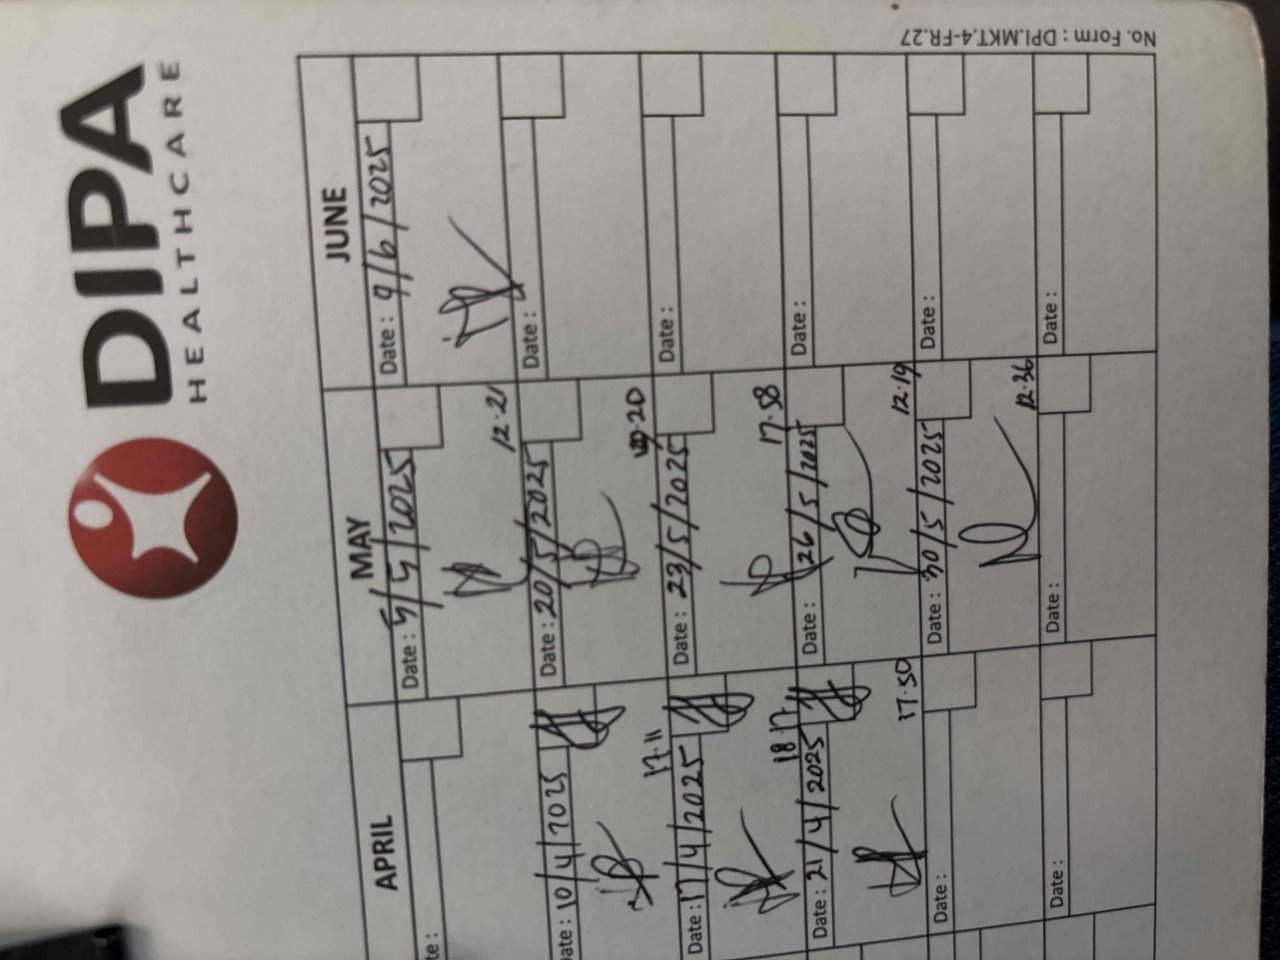 DIPA
HEALTHCARE
APRIL
te:
ate: 10/4/2025
17.11
Date: 17/4/2025
18.17
Date: 21/4/2025
17.50
Date:
Date:
MAY
Date: 5/5/2025
12.21
Date: 20/5/2025
Date: 23/5/2025
17.58
Date: 26/5/2025
12.19
Date: 30/5/2025
12.36
Date:
JUNE
Date: 9/6/2025
Date:
Date:
Date:
Date:
Date:
No. Form : DPI.MKT.4-FR.27